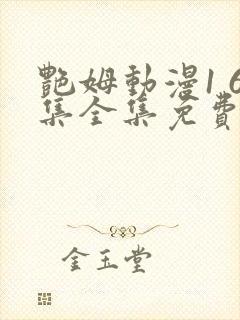 艷姆動漫1 6
集全集免費
金玉堂